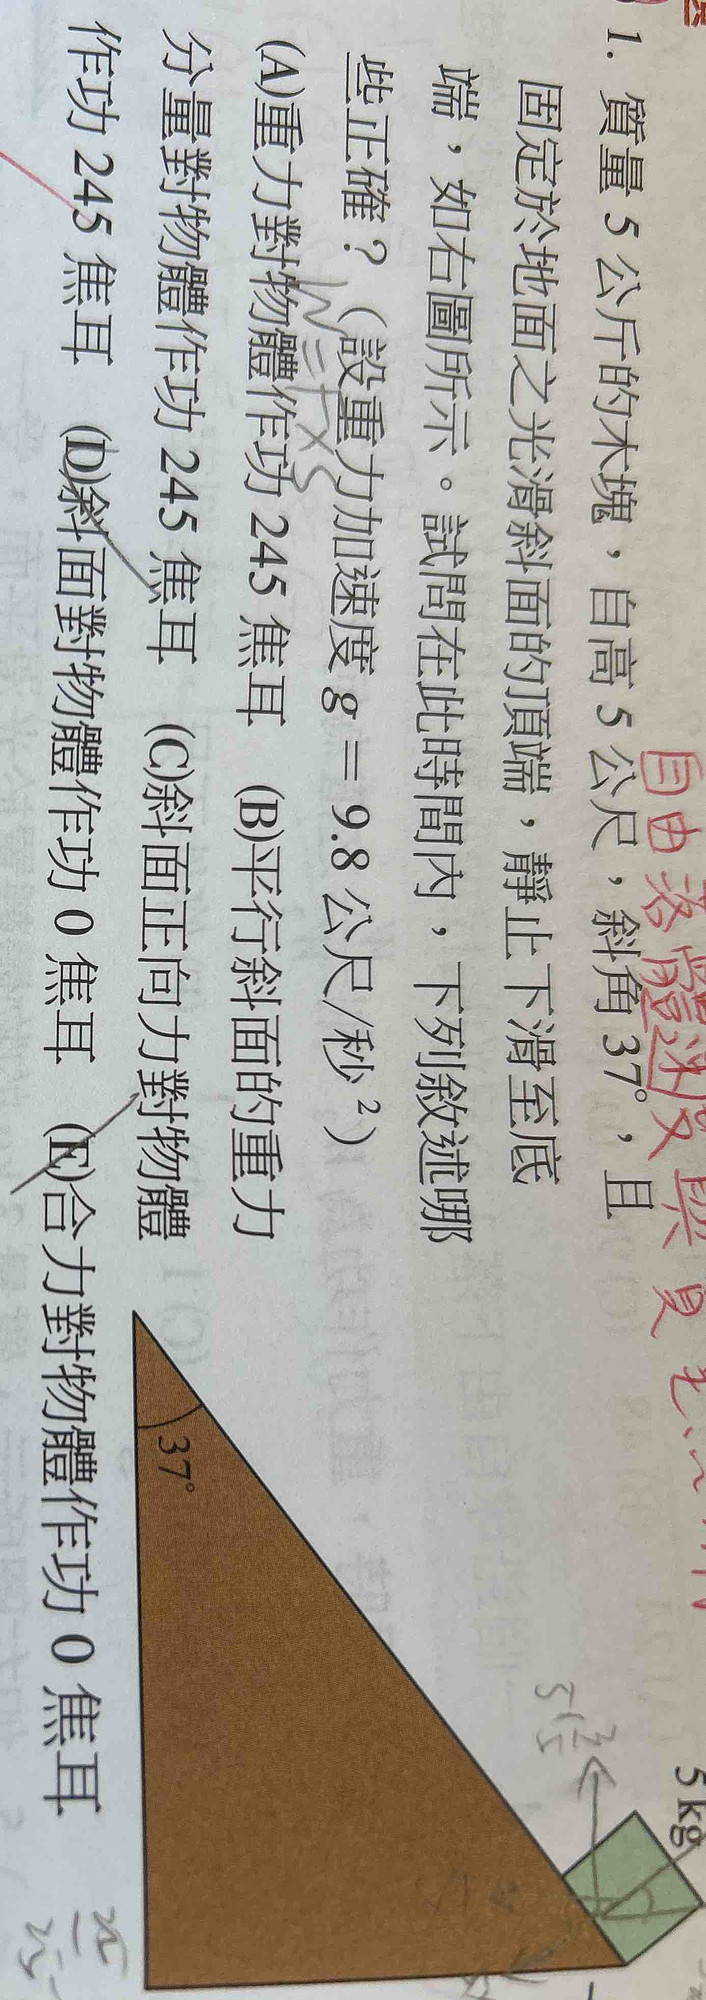 1. 質量 5 公斤的木塊，自高 5 公尺，斜角 37°，且
固定於地面之光滑斜面的頂端，靜止下滑至底
端，如右圖所示。試問在此時間內，下列敘述哪
些正確？（設重力加速度 g＝9.8 公尺/秒²）
(A)重力對物體作功 245 焦耳　(B)平行斜面的重力
分量對物體作功 245 焦耳　(C)斜面正向力對物體
作功 245 焦耳　(D)斜面對物體作功 0 焦耳　(E)合力對物體作功 0 焦耳
自由落體速度與
W=F×S
5 kg
37°